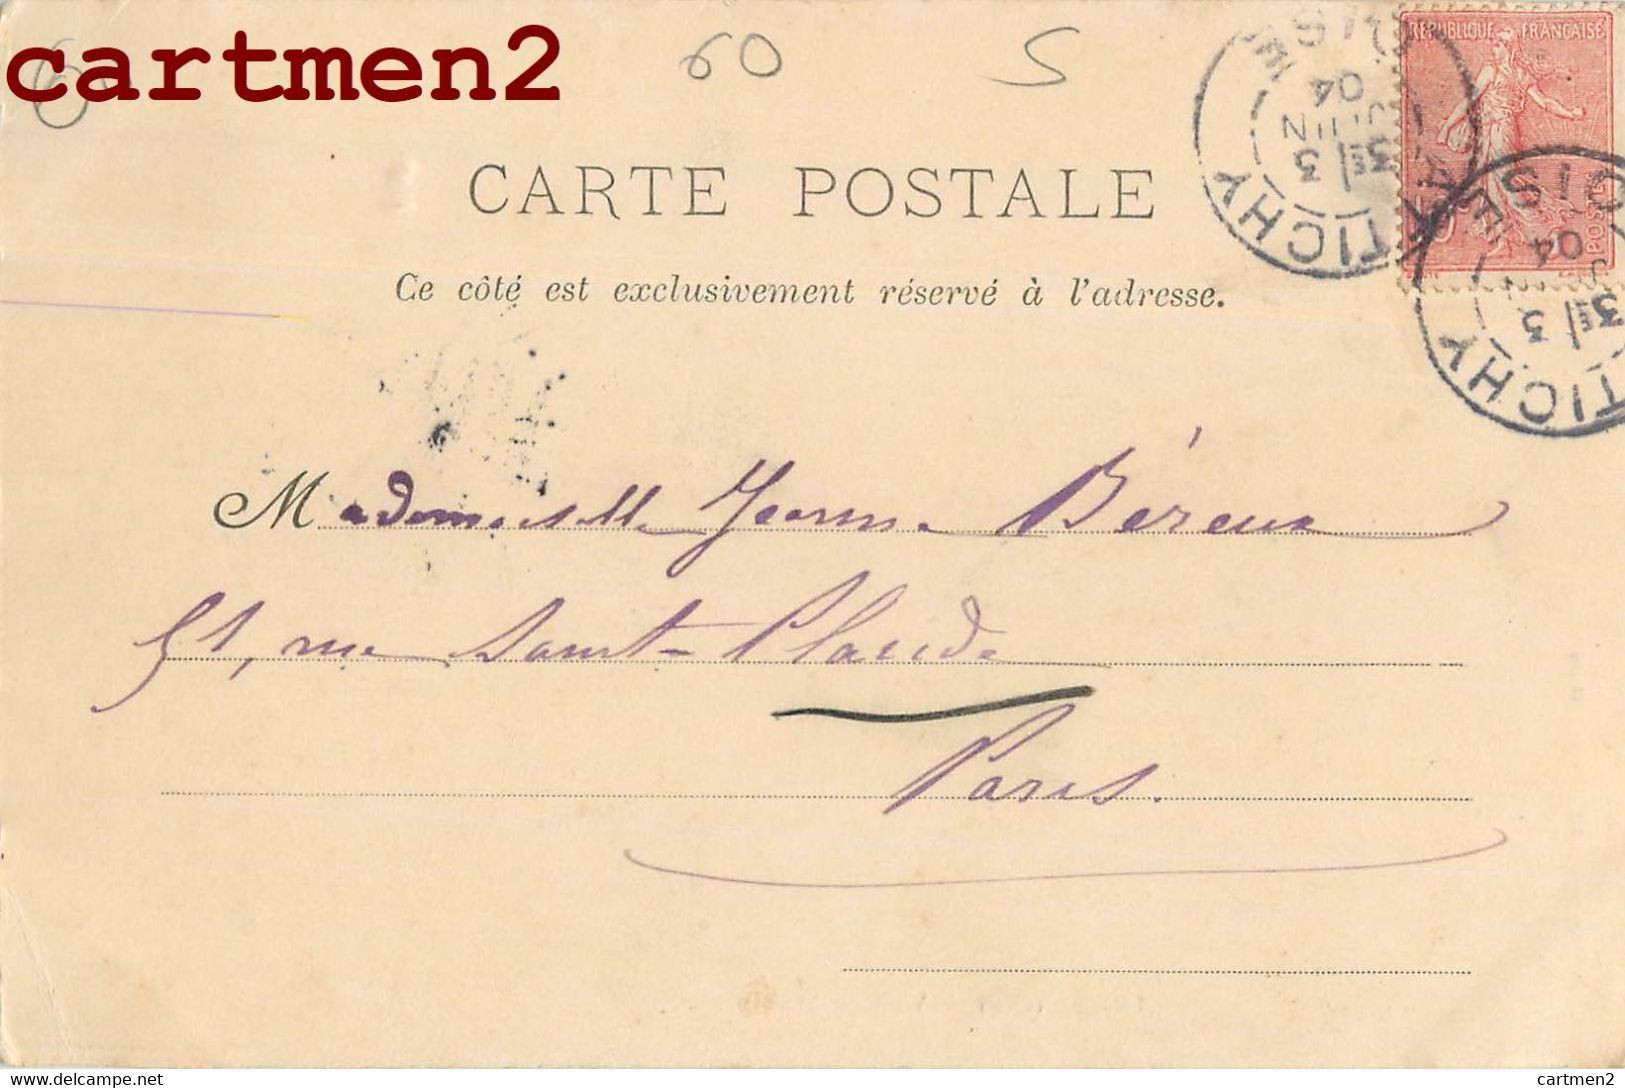 cartmen2
60 S
RÉPUBLIQUE FRANÇAISE
POSTES
ATTICHY
OISE
3E
3
JUIN
04
ATTICHY
OISE
3E
3
04
CARTE POSTALE
Ce côté est exclusivement réservé à l'adresse.
Mademoiselle Jeanne
51, rue Saint-Placide
Paris.
www.delcampe.net
cartmen2